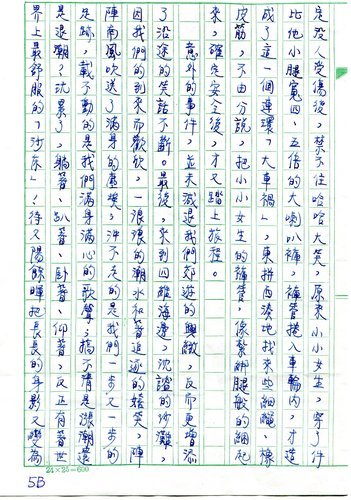 定沒人受傷後，禁不住哈哈大笑，原來小小女生，穿了件
比他小腿寬四、五倍的大喇叭褲，褲管捲入車輪內，才造
成了這一個連環「大車禍」，東拼西湊地找來些細繩、橡
皮筋，不由分說，把小小女生的褲管，像紮綁腿般的綑起
來，確定安全後，才又踏上旅程。
意外的事件，並未減退我們郊遊的興緻，反而更增添
了沿途的笑話不斷。最後，來到四維海邊，沈謐的沙灘，
因我們的到來而歡欣，一浪浪的潮水和著追逐的嬉笑，陣
陣南風吹送了滿身的塵埃，沖不走的是我們一步又一步的
足跡，載不動的是我們滿身滿心的歌聲，搞不清是漲潮還
是退潮？沈累了，躺著、趴著、臥著、仰著，反正有著世
界上最舒服的「沙床」！待夕陽餘暉把長長的身影又變為
24×25=600
5B